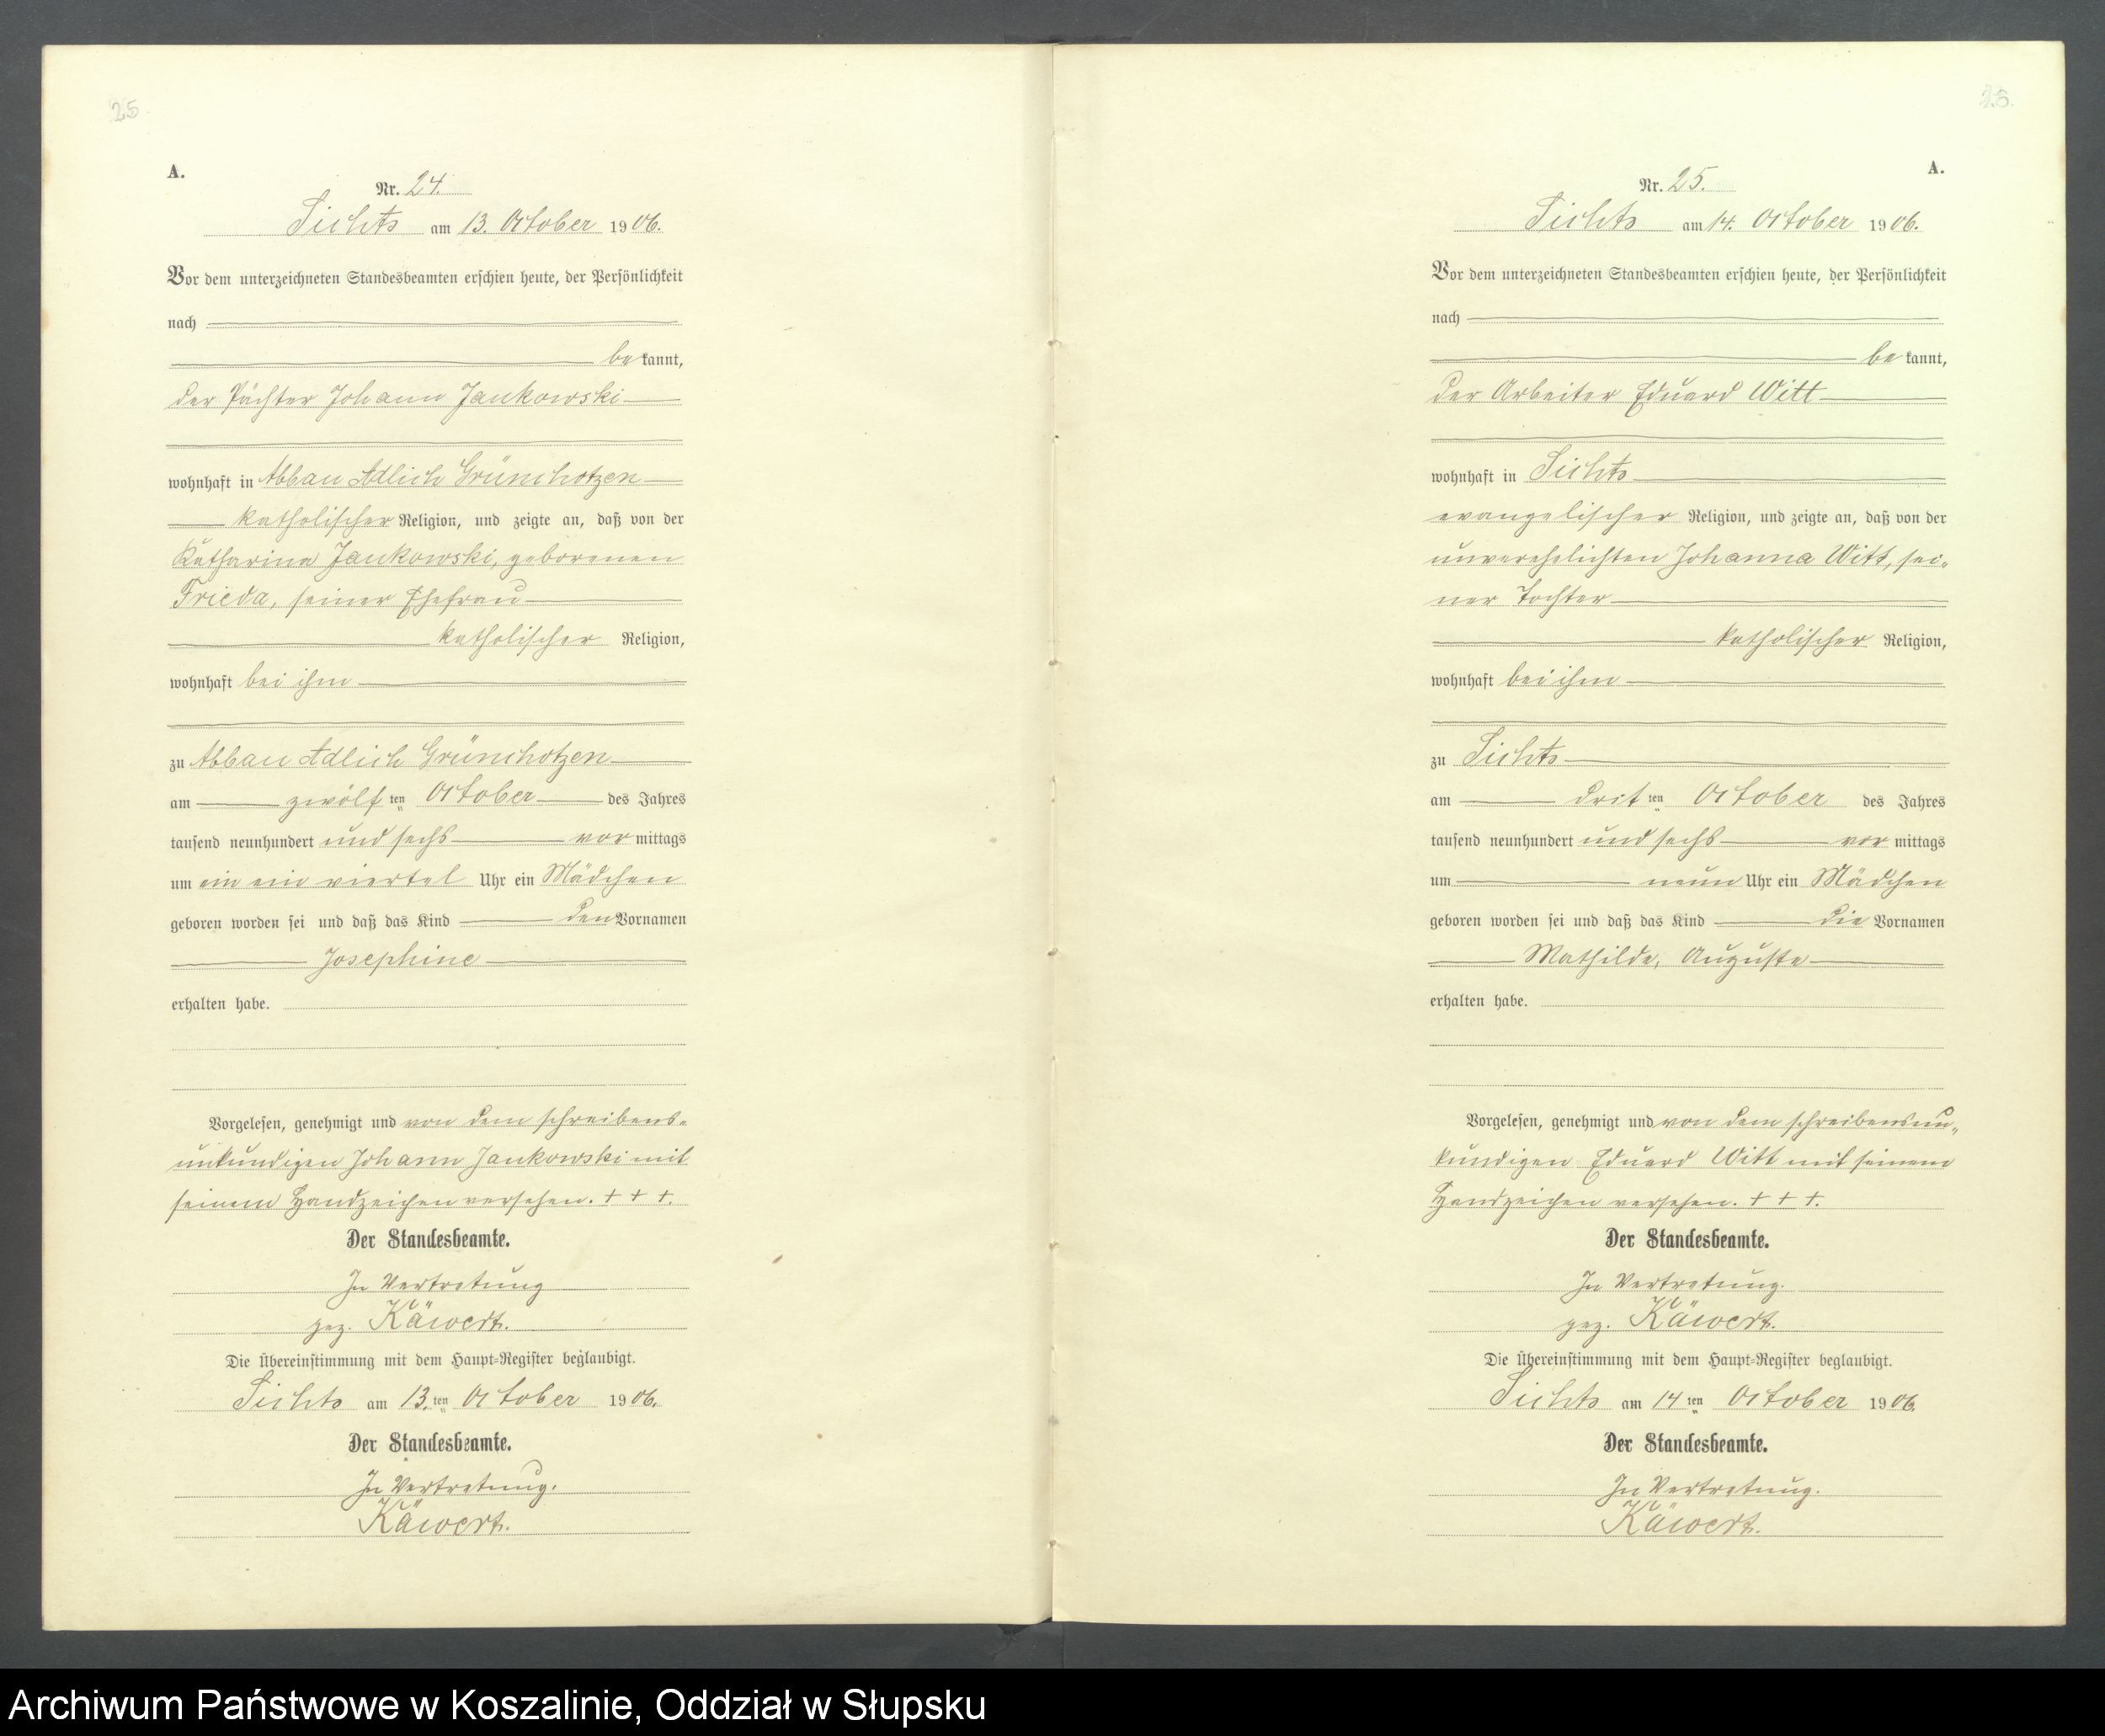 25
A.
Nr. 24.
Sichts am 13. October 1906.
Vor dem unterzeichneten Standesbeamten erschien heute, der Persönlichkeit
nach
be kannt,
der Pächter Johann Jankowski
wohnhaft in Abbau Adlich Grünchotzen
katholischer Religion, und zeigte an, daß von der
Katharina Jankowski, geborenen
Frieda, seiner Ehefrau
katholischer Religion,
wohnhaft bei ihm
zu Abbau Adlich Grünchotzen
am zwölf ten October des Jahres
tausend neunhundert und sechs vor mittags
um ein ein viertel Uhr ein Mädchen
geboren worden sei und daß das Kind den Vornamen
Josephine
erhalten habe.
Vorgelesen, genehmigt und von dem schreibens-
unkundigen Johann Jankowski mit
seinem Handzeichen versehen. + + +.
Der Standesbeamte.
In Vertretung
gez. Käwert.
Die Übereinstimmung mit dem Haupt-Register beglaubigt.
Sichts am 13. ten October 1906.
Der Standesbeamte.
In Vertretung.
Käwert.
A.
Nr. 25.
Sichts am 14. October 1906.
Vor dem unterzeichneten Standesbeamten erschien heute, der Persönlichkeit
nach
be kannt,
der Arbeiter Eduard Witt
wohnhaft in Sichts
evangelischer Religion, und zeigte an, daß von der
unverehelichten Johanna Witt, sei-
ner Tochter
katholischer Religion,
wohnhaft bei ihm
zu Sichts
am drit ten October des Jahres
tausend neunhundert und sechs vor mittags
um neun Uhr ein Mädchen
geboren worden sei und daß das Kind die Vornamen
Mathilde, Auguste
erhalten habe.
Vorgelesen, genehmigt und von dem schreibensun-
kundigen Eduard Witt mit seinem
Handzeichen versehen. + + +.
Der Standesbeamte.
In Vertretung.
gez. Käwert.
Die Übereinstimmung mit dem Haupt-Register beglaubigt.
Sichts am 14 ten October 1906
Der Standesbeamte.
In Vertretung.
Käwert.
Archiwum Państwowe w Koszalinie, Oddział w Słupsku